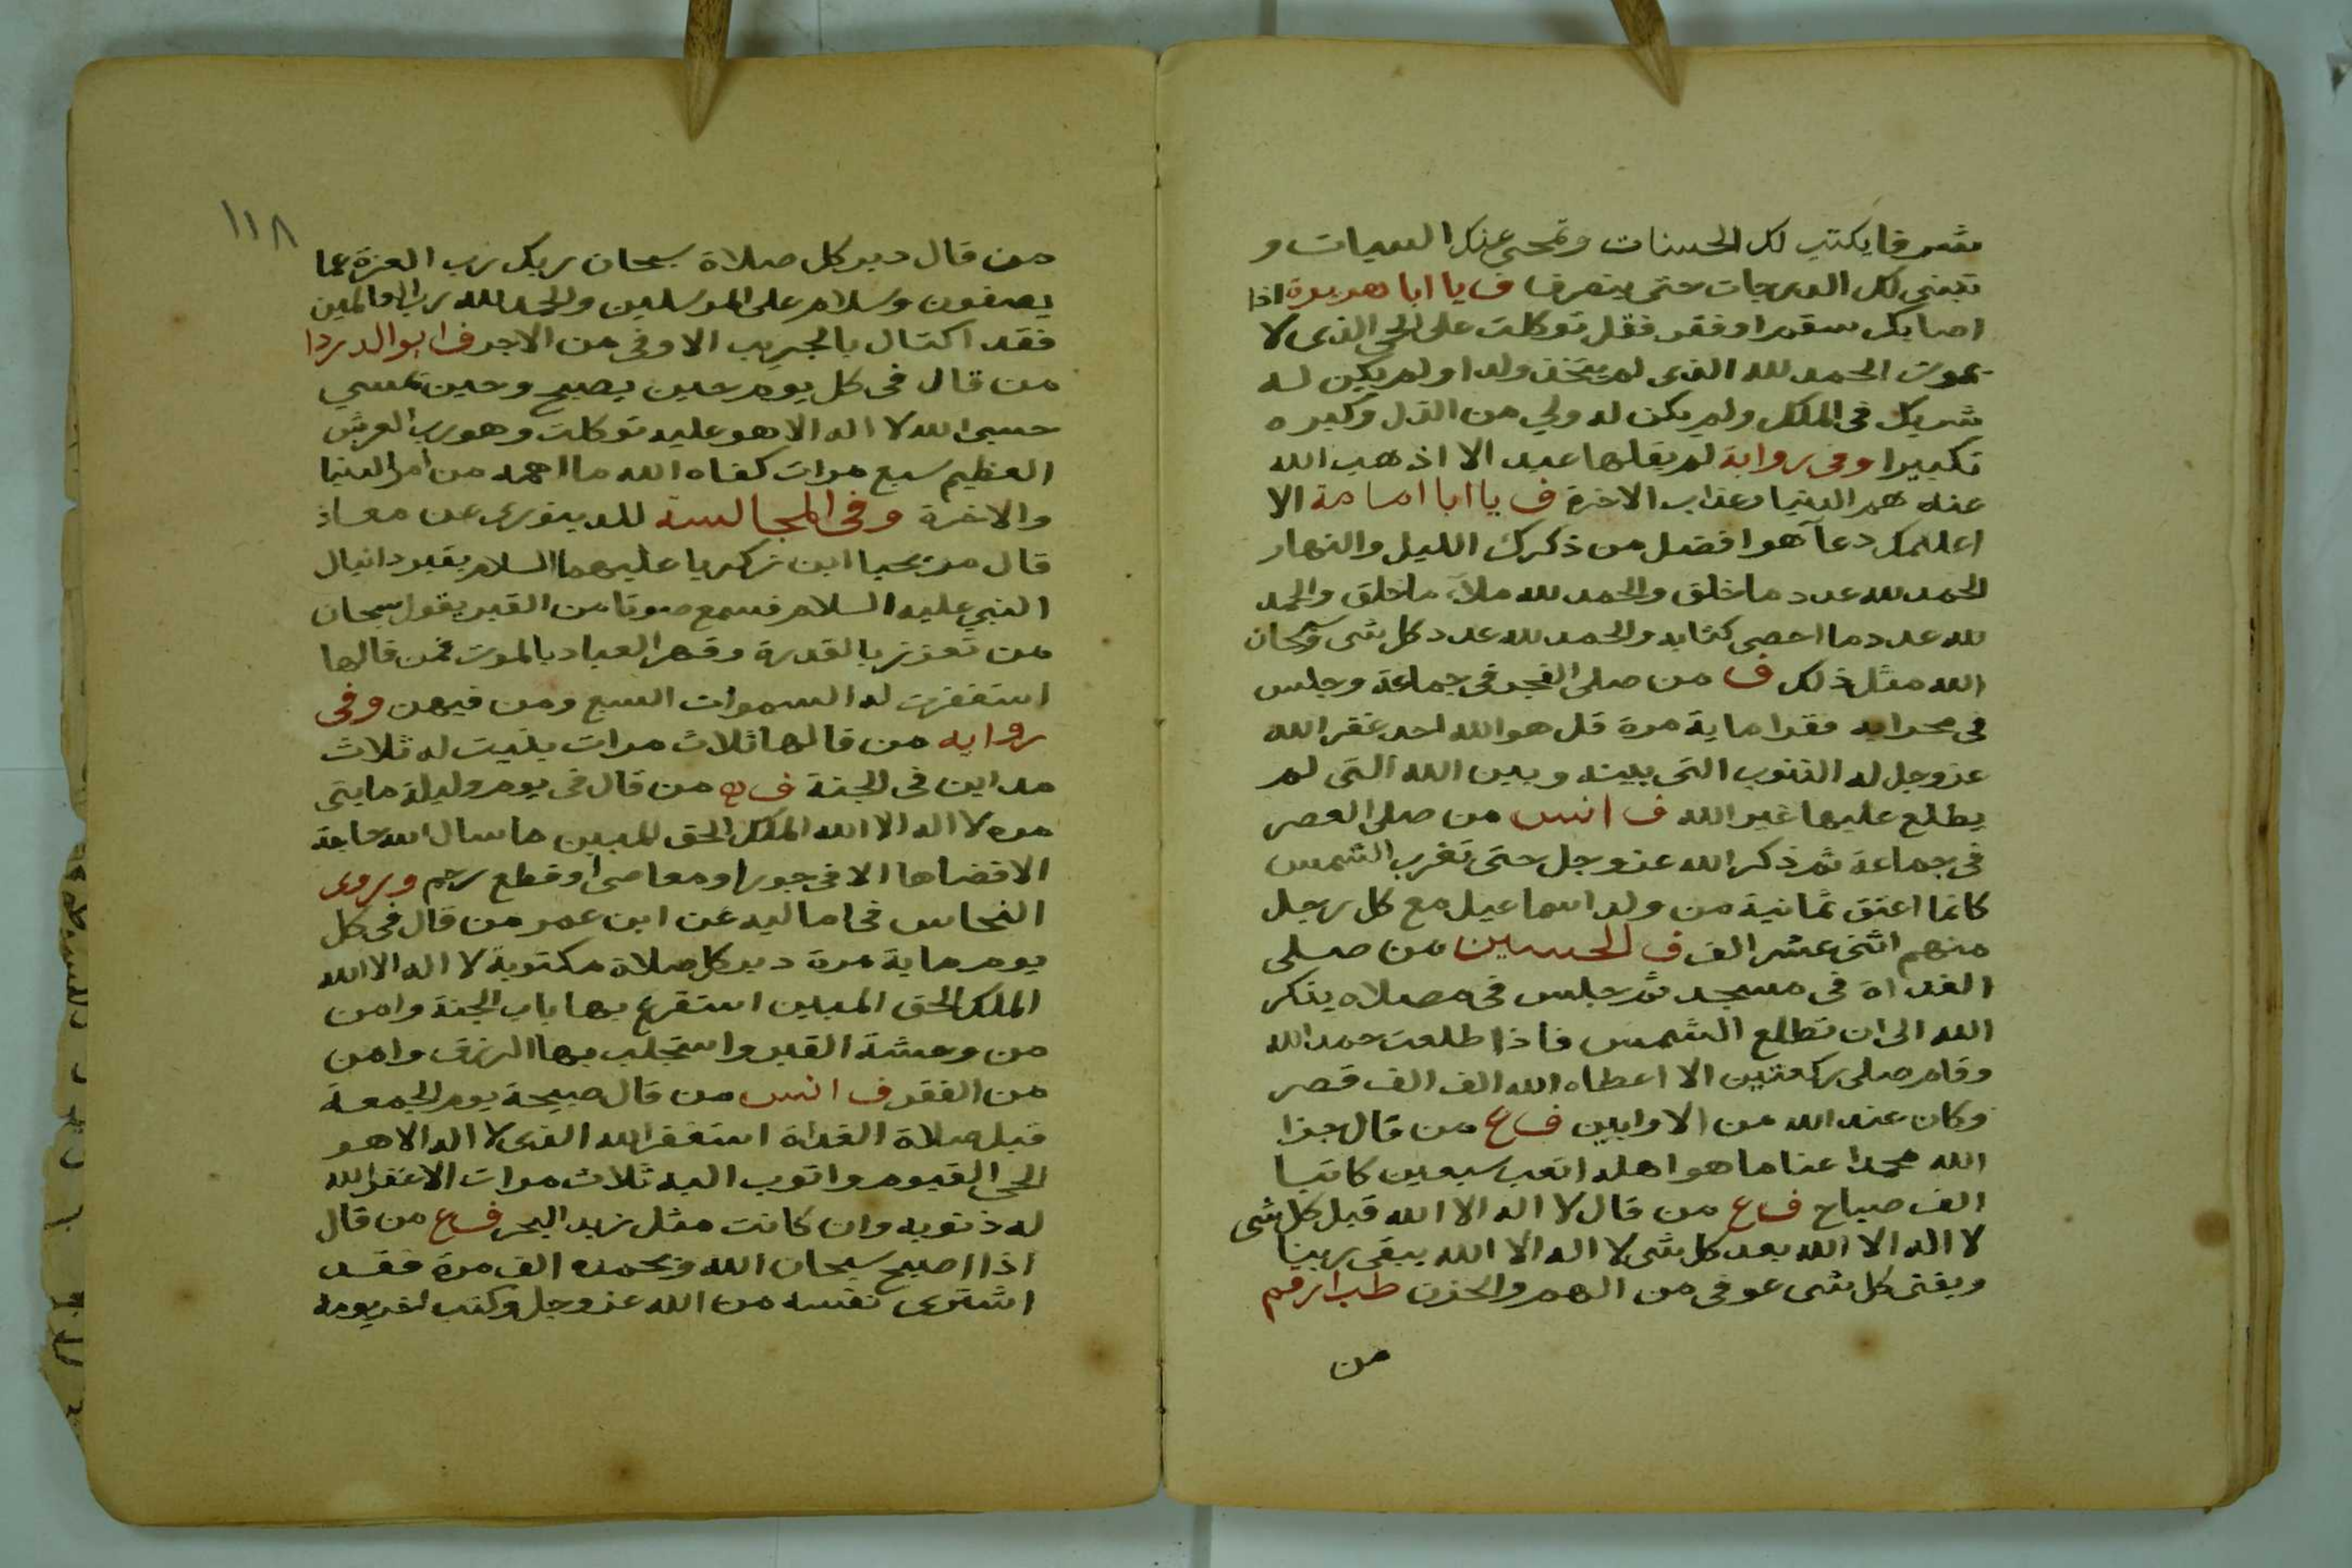 شرفا يكتب لك الحسنات وتمحى عنك السيات و
تبنى لك الدرجات حتى ينصرف ف يا ابا هريرة اذا
اصابك سقم او فقر فقل توكلت على الحي الذى لا
يموت الحمد لله الذى لم يتخذ ولدا ولم يكن له
شريك فى الملك ولم يكن له ولي من الذل وكبره
تكبيرا وفى رواية لم يقلها عبد الا اذهب الله
عنه هم الدنيا وعذاب الاخرة ف يا ابا امامة الا
اعلمك دعآ هو افضل من ذكرك الليل والنهار
الحمد لله عدد ما خلق والحمد لله ملآ ما خلق والحمد
لله عدد ما احصى كتابه والحمد لله عدد كل شى وسبحان
الله مثل ذلك ف من صلى الفجر فى جماعة وجلس
فى محرابه فقرا ماية مرة قل هو الله احد غفر الله
عز وجل له الذنوب التى بينه وبين الله التى لم
يطلع عليها غير الله ف انس من صلى العصر
فى جماعة ثم ذكر الله عز وجل حتى تغرب الشمس
كانما اعتق ثمانية من ولد اسماعيل مع كل رجل
منهم اثنى عشر الف ف الحسين من صلى
الغداة فى مسجد ثم جلس فى مصلاه يذكر
الله الى ان تطلع الشمس فاذا طلعت حمد الله
وقام يصلى ركعتين الا اعطاه الله الف الف قصر
وكان عند الله من الاوابين ف ع من قال جزا
الله محمدا عنا ما هو اهله اتعب سبعين كاتبا
الف صباح ف ع من قال لا اله الا الله قبل كل شى
لا اله الا الله بعد كل شى لا اله الا الله يبقى ربنا
ويفنى كل شى عوفى من الهم والحزن طب ارقم
من
١١٨
من قال دبر كل صلاة سبحان ربك رب العزة عما
يصفون وسلام على المرسلين والحمد لله رب العالمين
فقد اكتال بالجريب الاوفى من الاجر ف ابو الدردا
من قال فى كل يوم حين يصبح وحين يمسي
حسبى الله لا اله الا هو عليه توكلت وهو رب العرش
العظيم سبع مرات كفاه الله ما اهمه من امر الدنيا
والاخرة وفى المجالسة للدينورى عن معاذ
قال مر يحيا ابن زكريا عليهما السلام بقبر دانيال
النبي عليه السلام فسمع صوتا من القبر يقول سبحان
من تعزز بالقدرة وقهر العباد بالموت فمن قالها
استغفرت له السموات السبع ومن فيهن وفى
رواية من قالها ثلاث مرات بنيت له ثلاث
مداين فى الجنة ف من قال فى يوم وليلة مايتى
مره لا اله الا الله الملك الحق المبين ما سال الله حاجة
الا قضاها الا فى جور او معاصى او قطع رحم ويروى
النحاس فى اماليه عن ابن عمر من قال فى كل
يوم ماية مرة دبر كل صلاة مكتوبة لا اله الا الله
الملك الحق المبين استقرع بها باب الجنة وامن
من وحشة القبر واستجلب بها الرزق وامن
من الفقر ف انس من قال صبيحة يوم الجمعة
قبل صلاة الغداة استغفر الله الذى لا اله الا هو
الحي القيوم واتوب اليه ثلاث مرات الا غفر الله
له ذنوبه وان كانت مثل زبد البحر ف ع من قال
اذا اصبح سبحان الله وبحمده الف مرة فقد
اشترى نفسه من الله عز وجل وكتب اخر يومه